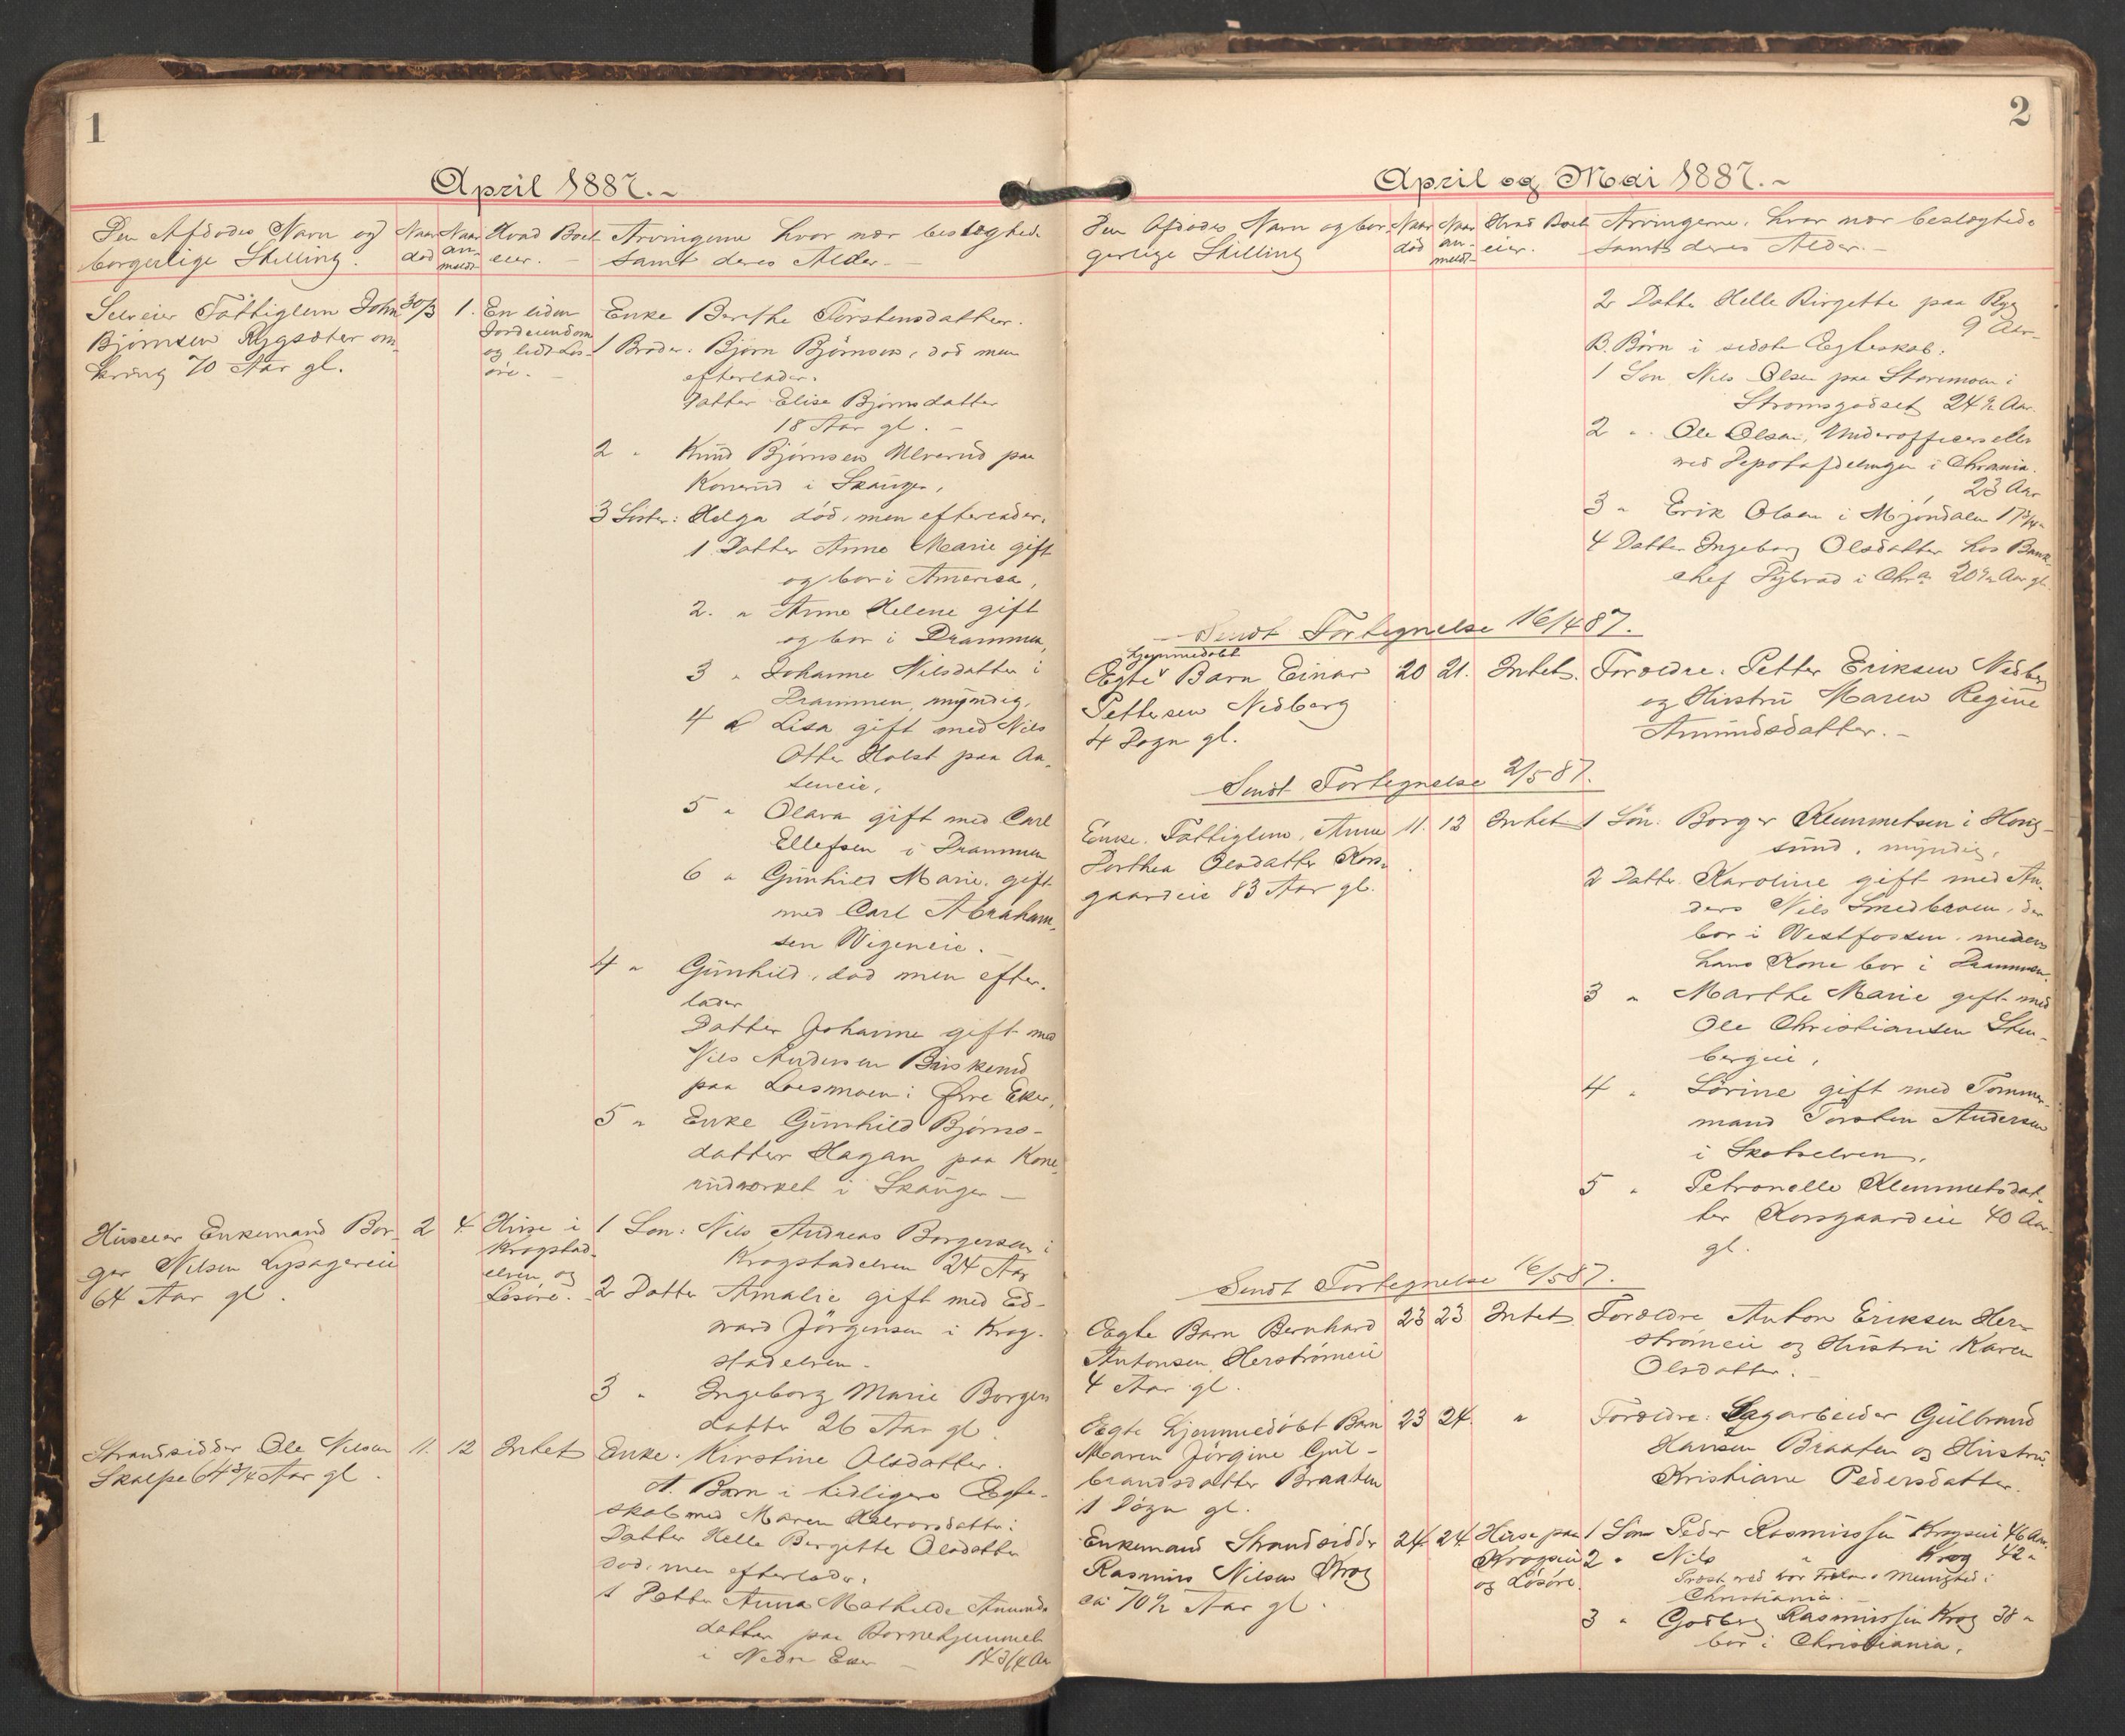 1
April 1887.
Den Afdødes Navn og
borgerlige Stilling.
Naar
død
Naar
an-
meldt
Hvad Boet
eier.
Arvingerne hvor nær beslægtede
samt deres Alder.
Selveier Fattiglem John
Bjørnsen Rygsæter om-
kring 70 Aar gl.
30/3
1.
En liden
Jordeiendom
og lidt Løs-
øre.
Enke Berthe Torstensdatter.
1 Broder. Bjørn Bjørnsen, død men
efterlader.
Datter Elise Bjørnsdatter
18 Aar gl.
2 " Knud Bjørnsen Ulverud paa
Konerud i Skauger,
3 Søster: Helga død, men efterlader.
1 Datter Anne Marie gift
og bor i America,
2. " Anne Helene gift
og bor i Drammen,
3 " Johanne Nilsdatter i
Drammen, myndig,
4 " Lisa gift med Nils
Otter Holst paa Aa-
seneie,
5 " Olava gift med Carl
Ellefsen i Drammen
6 " Gunhild Marie, gift
med Carl Abraham-
sen Vigeneie.
4 " Gunhild, død men efter-
lader
Datter Johanne gift med
Nils Andersen Buskerud
paa Loesmoen i Øvre Eker,
5 " Enke Gunhild Bjørns-
datter Hagan paa Kone-
rudværket i Skauger
Huseier Enkemand Bor-
ger Nilsen Lysagereie
64 Aar gl.
2
4
Huse i
Krogstad-
elven, og
Løsøre.
1 Søn: Nils Andreas Borgersen i
Krogstadelven 24 Aar
2 Datter Amalie gift med Ed-
ward Jørgensen i Krog-
stadelven
3 " Ingeborg Marie Borgers
datter 26 Aar gl.
Strandsidder Ole Nilsen
Skalpe 64 3/4 Aar gl.
11.
12
Intet
Enke. Kirstine Olsdatter.
A. Børn i tidligere Egte-
skab med Maren Halvorsdatter:
Datter Helle Bergitte Olsdatter
død, men efterlader:
1 Datter Anna Mathilde Amunds
datter paa Børnehjemmet
i Nedre Eker 14 3/4 Aar
2
April og Mai 1887.
Den Afdødes Navn og bor-
gerlige Stilling
Naar
død
Naar
an-
meldt
Hvad Boet
eier.
Arvingerne, hvor nær beslægtede
samt deres Alder.
2 Datter Helle Birgette paa Ryg
9 Aar
B. Børn i sidste Egteskab:
1 Søn Nils Olsen paa Storemoen i
Strømsgodset 24 1/2 Aar.
2 " Ole Olsen, Underofficerselev
ved Depotafdelingen i Chrania.
23 Aar
3 " Erik Olsen i Mjøndalen 17 3/4 "
4 Datter Ingeborg Olsdatter hos Bank-
chef Dybvad i Chr.a 20 1/2 Aar gl.
Sendt Fortegnelse 16/4 87.
hjemmedøbt
Egte Barn Einar
Pettersen Nedberg
4 Døgn gl.
20
21.
Intet.
Forældre. Petter Eriksen Nedberg
og Hustru Maren Regine
Amundsdatter.
Sendt Fortegnelse 2/5 87.
Enke. Fattiglem, Anne
Dorthea Olsdatter Kors-
gaardeie 83 Aar gl.
11.
12
Intet
1 Søn. Borger Klemmetsen i Houg-
sund, myndig,
2 Datter. Karoline gift med An-
ders Nils Smedbraaten, der
bor i Vestfossen, medens
hans Kone bor i Drammen.
3 " Marthe Marie gift med
Ole Christiansen Sten-
bergeie,
4 " Sørine gift med Tømmer-
mand Torsten Andersen
i Skotselven,
5 " Petronelle Klemmetsdat-
ter Korsgaardeie 40 Aar
gl.
Sendt Fortegnelse 16/5 87.
Egte Barn Bernhard
Antonsen Herstrømeie
4 Aar gl.
23
23
Intet
Forældre Anton Eriksen Her-
strømeie og Hustru Karen
Olsdatter.
Egte hjemmedøbt Barn
Maren Jørgine Gul-
brandsdatter Braaten
1 Døgn gl.
23
24.
"
Forældre: Sagarbeider Gulbrand
Hansen Braaten og Hustru
Kristiane Pedersdatter.
Enkemand Strandsidder
Rasmus Nilsen Krog
ca 70 1/2 Aar gl.
24
24
Huse paa
Krogseie
og Løsøre.
1 Søn Peder Rasmussen Krogseie 46 Aar.
2 " Nils " Krog 42 "
Præst ved vor Frelsers Menighed i
Christiania.
3 " Godberg Rasmussen Krog 38 "
bor i Christiania.